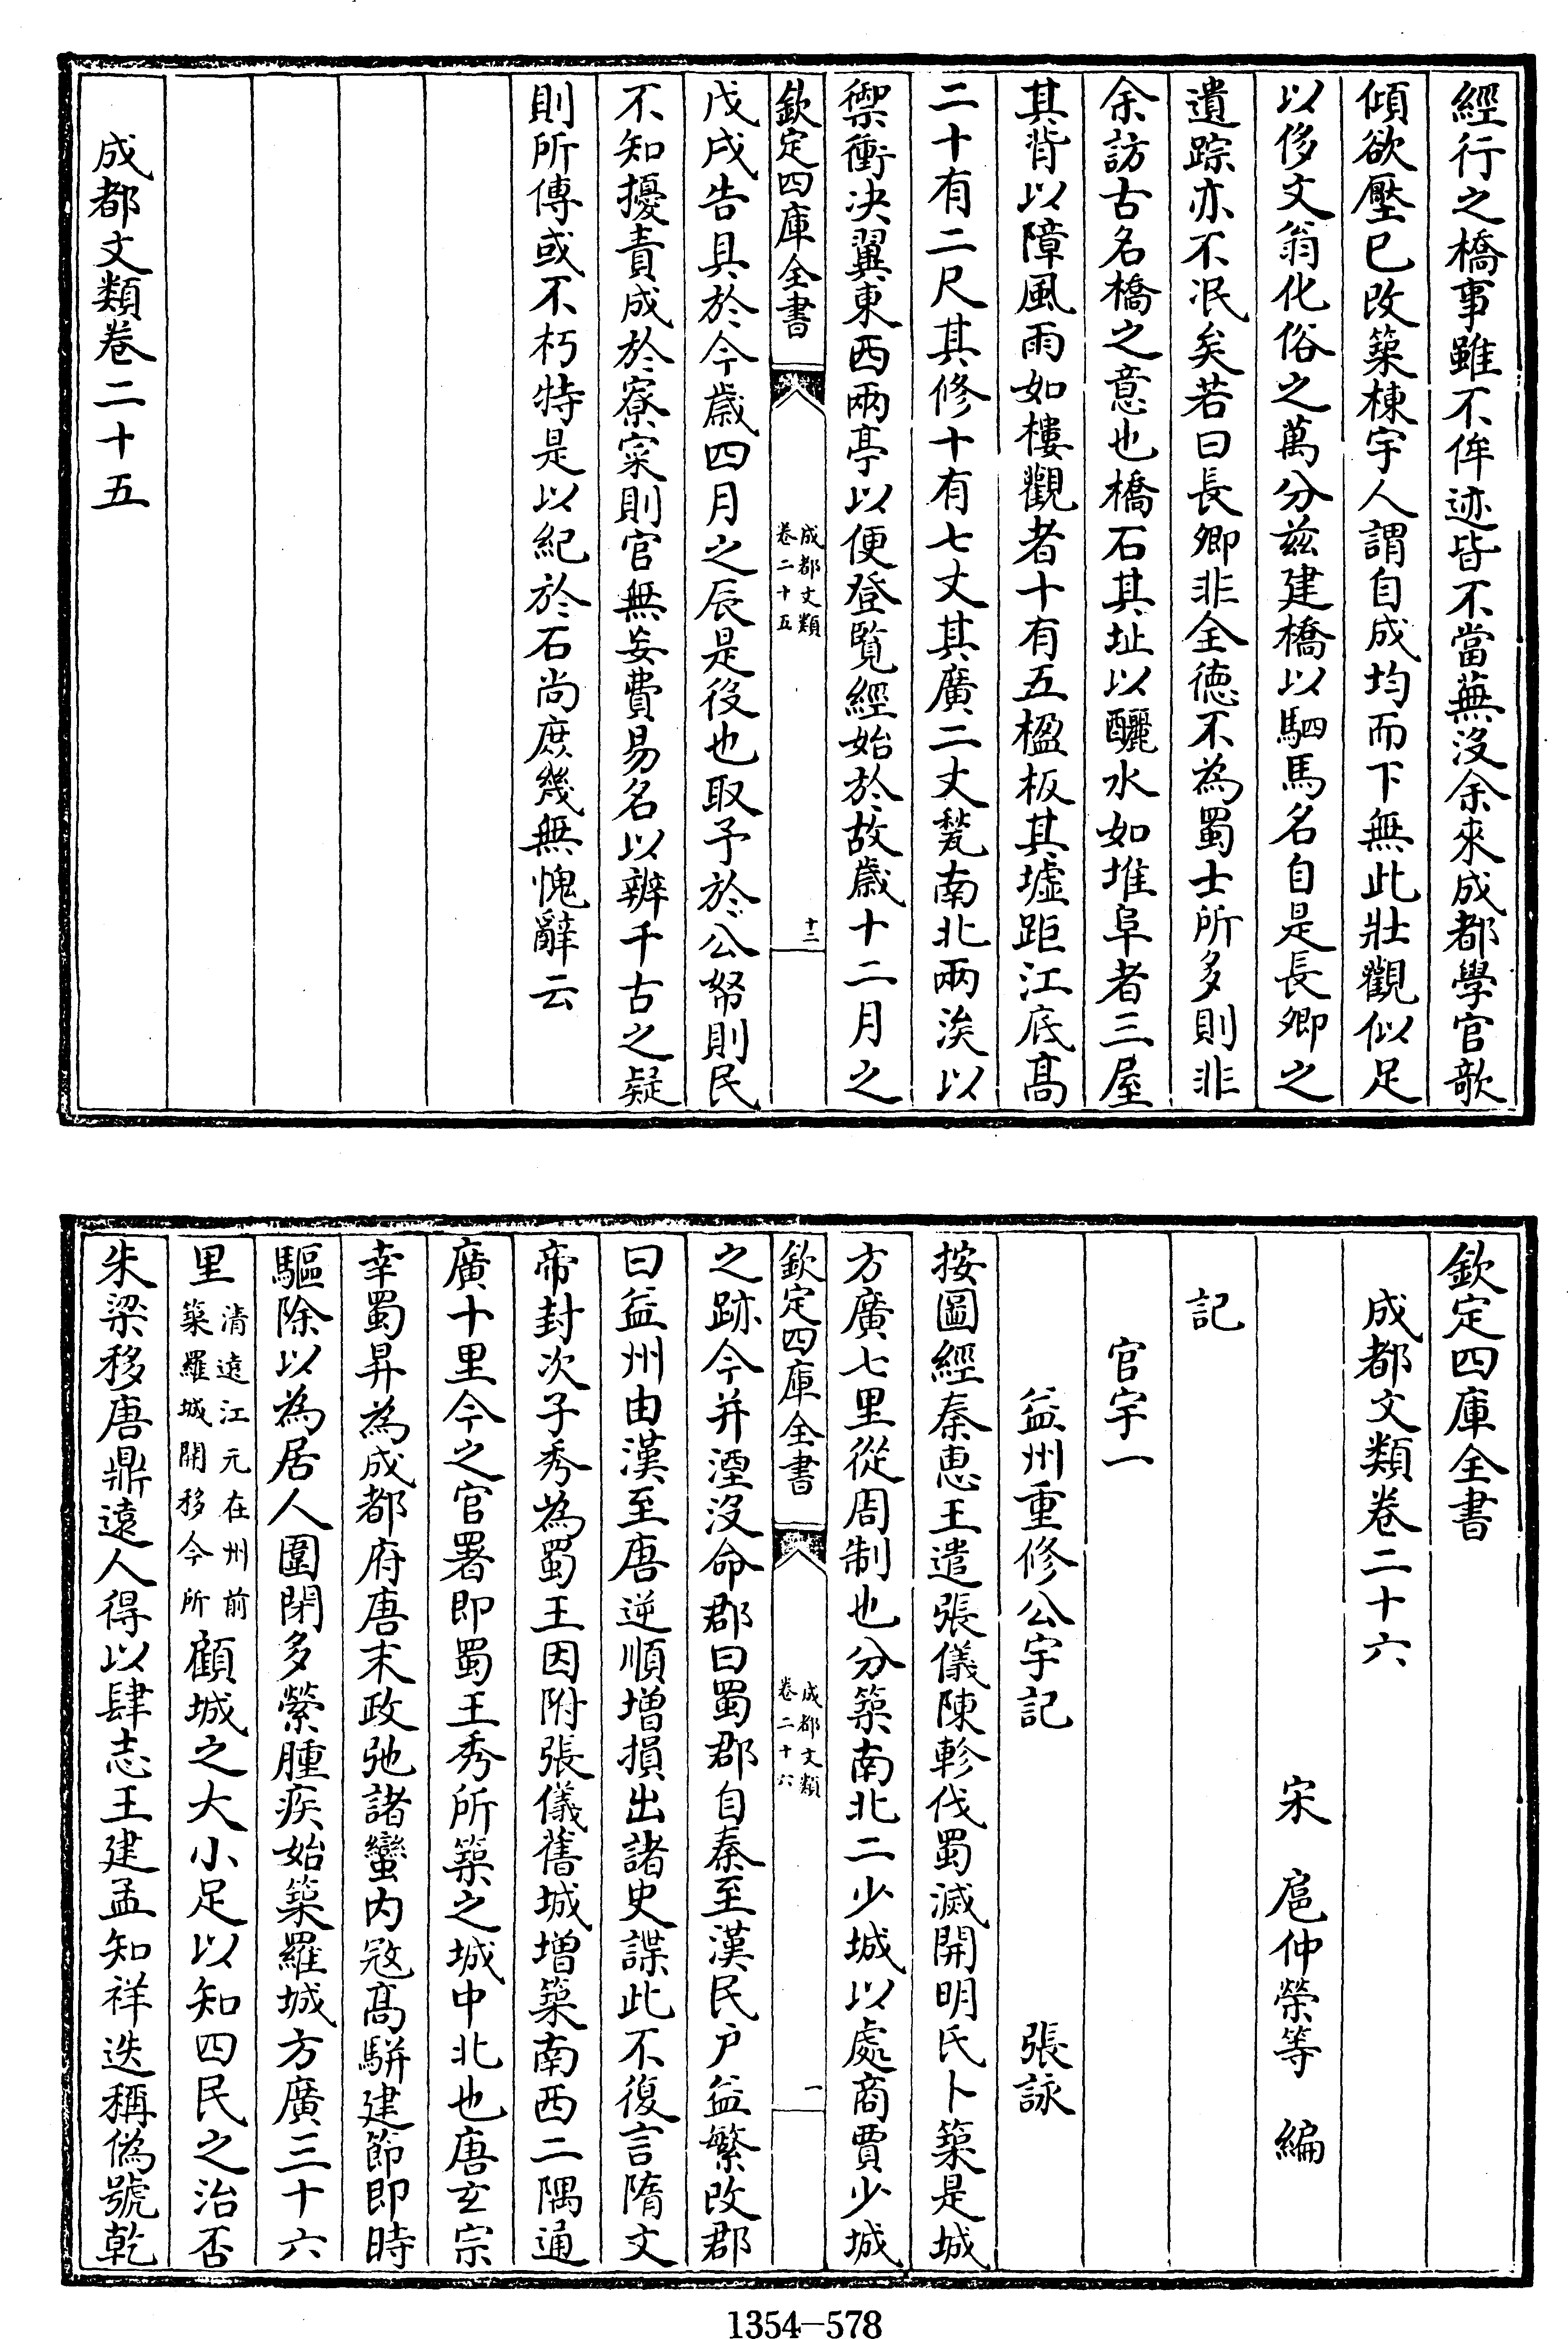 經行之橋事雖不侔迹皆不當蕪沒余來成都學官欹
傾欲壓已改築棟宇人謂自成均而下無此壯觀似足
以侈文翁化俗之萬分兹建橋以駟馬名自是長卿之
遺踪亦不泯矣若曰長卿非全徳不為蜀士所多則非
余訪古名橋之意也橋石其址以釃水如堆阜者三屋
其背以障風雨如樓觀者十有五楹板其墟距江底髙
二十有二尺其修十有七丈其廣二丈甃南北兩涘以
禦衝决翼東西兩亭以便登覽經始於故歳十二月之
欽定四庫全書
成都文類
卷二十五
十二
戊戌告具於今歳四月之辰是役也取予於公帑則民
不知擾責成於寮寀則官無妄費易名以辨千古之疑
則所傳或不朽特是以紀於石尚庶幾無愧辭云
成都文類卷二十五
欽定四庫全書
成都文類卷二十六
宋 扈仲榮等 編
記
官宇一
益州重修公宇記 張詠
按圖經秦惠王遣張儀陳軫伐蜀滅開明氏卜築是城
方廣七里從周制也分築南北二少城以處商賈少城
欽定四庫全書
成都文類
卷二十六
一
之跡今并湮沒命郡曰蜀郡自秦至漢民户益繁改郡
曰益州由漢至唐逆順增損出諸史諜此不復言隋文
帝封次子秀為蜀王因附張儀舊城増築南西二隅通
廣十里今之官署即蜀王秀所築之城中北也唐玄宗
幸蜀昇為成都府唐末政弛諸蠻内宼髙駢建節即時
驅除以為居人圍閉多縈腫疾始築羅城方廣三十六
里清遠江元在州前築羅城開移今所顧城之大小足以知四民之治否
朱梁移唐鼎遠人得以肆志王建孟知祥迭稱偽號乾
1354-578